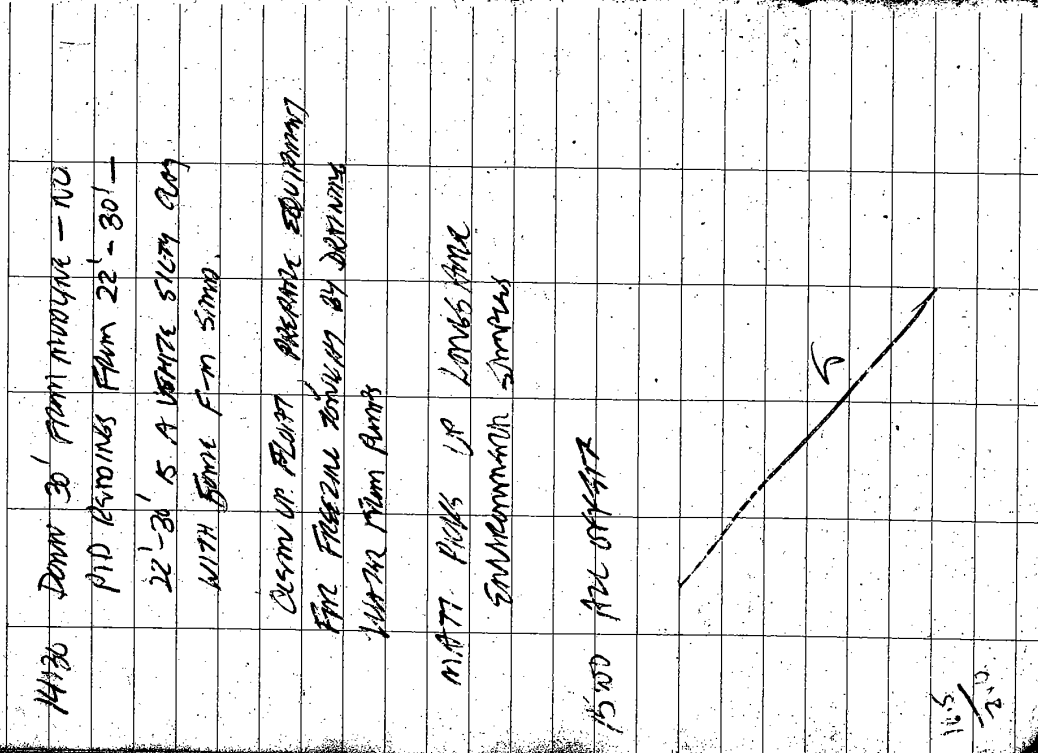 14:30 DOWN 30' FROM MUDLINE – NO
PID READINGS FROM 22'-30' –
22'-30' IS A WHITE SILTY CLAY
WITH SOME F-M SAND.
CLEAN UP FLOAT PREPARE EQUIPMENT
FOR FREEZING TONIGHT BY DRAINING
WATER FROM PUMPS
MATT PICKS UP LONGS
ENVIRONMENTAL SAMPLES
15:00 ALL OFFSITE